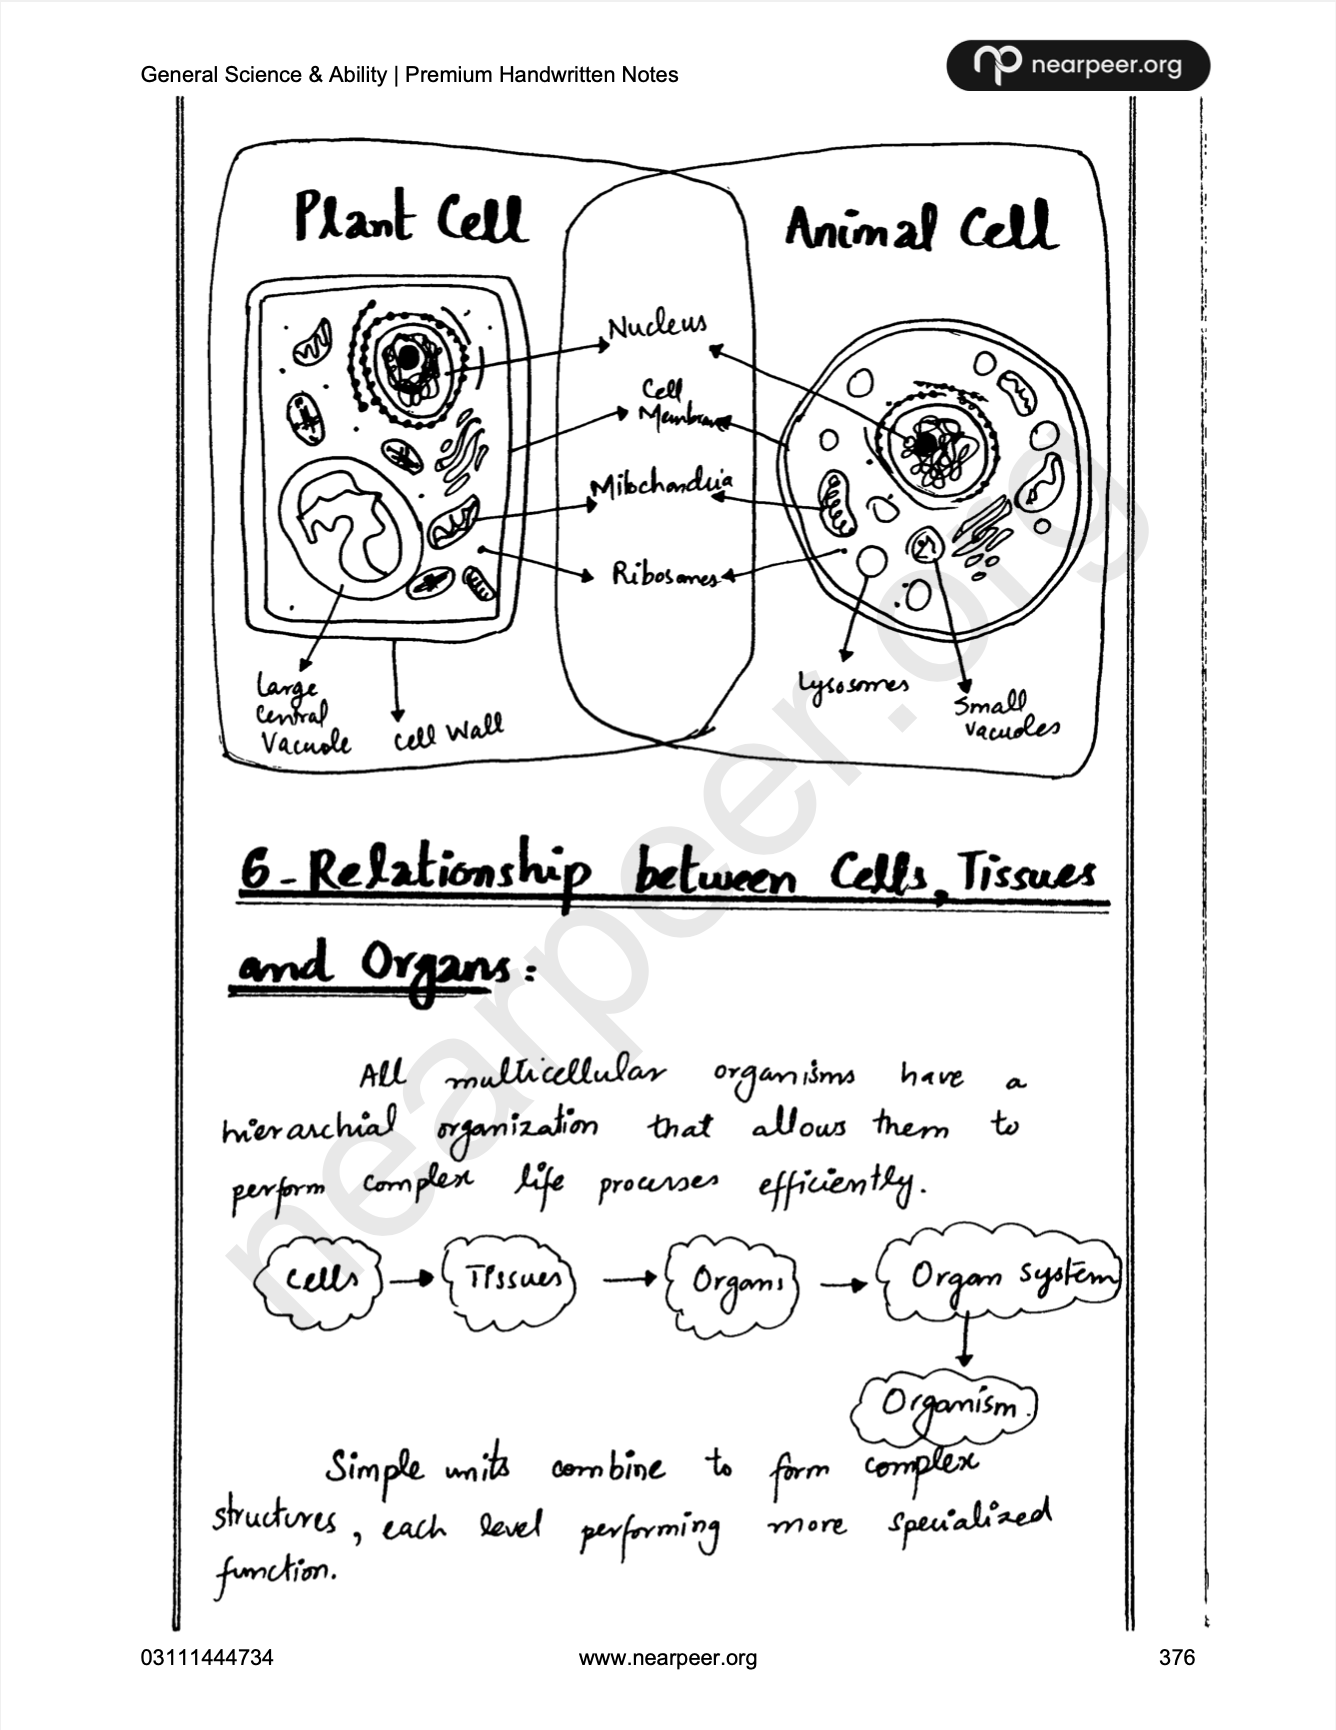 General Science & Ability | Premium Handwritten Notes
nearpeer.org
Plant Cell
Animal Cell
Nucleus
Cell
Membrane
Mitochondria
Ribosomes
Large
Central
Vacuole
Cell Wall
Lysosomes
Small
vacuoles
6 - Relationship between Cells, Tissues
and Organs:
All multicellular organisms have a
hierarchial organization that allows them to
perform complex life processes efficiently.
Cells
Tissues
Organs
Organ system
Organism.
Simple units combine to form complex
structures, each level performing more specialized
function.
nearpeer.org
03111444734
www.nearpeer.org
376